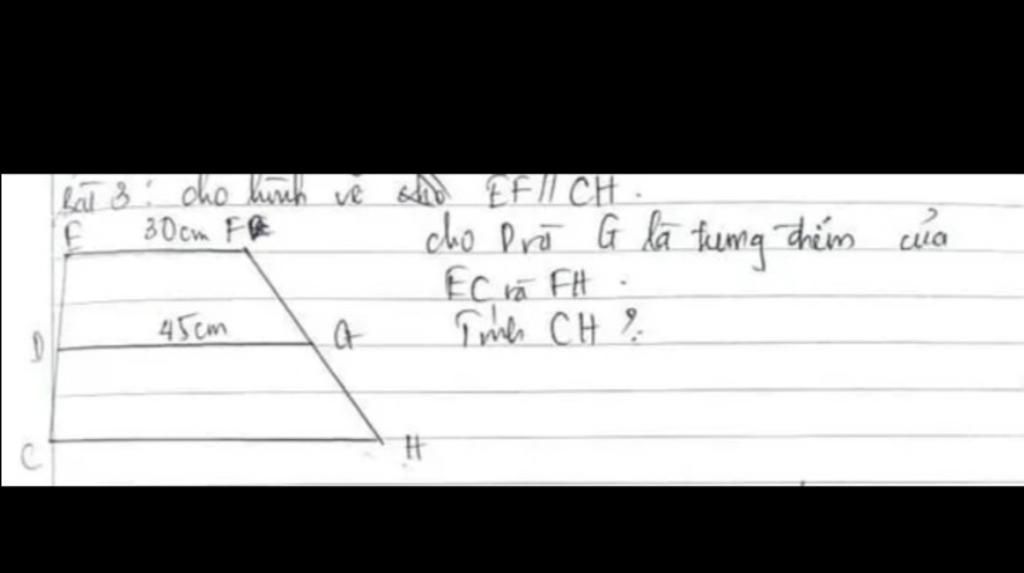 Bài 3: cho hình vẽ EF // CH.
E 30cm F
cho D và G là trung điểm của
EC và FH.
D 45cm G
Tính CH?
C H